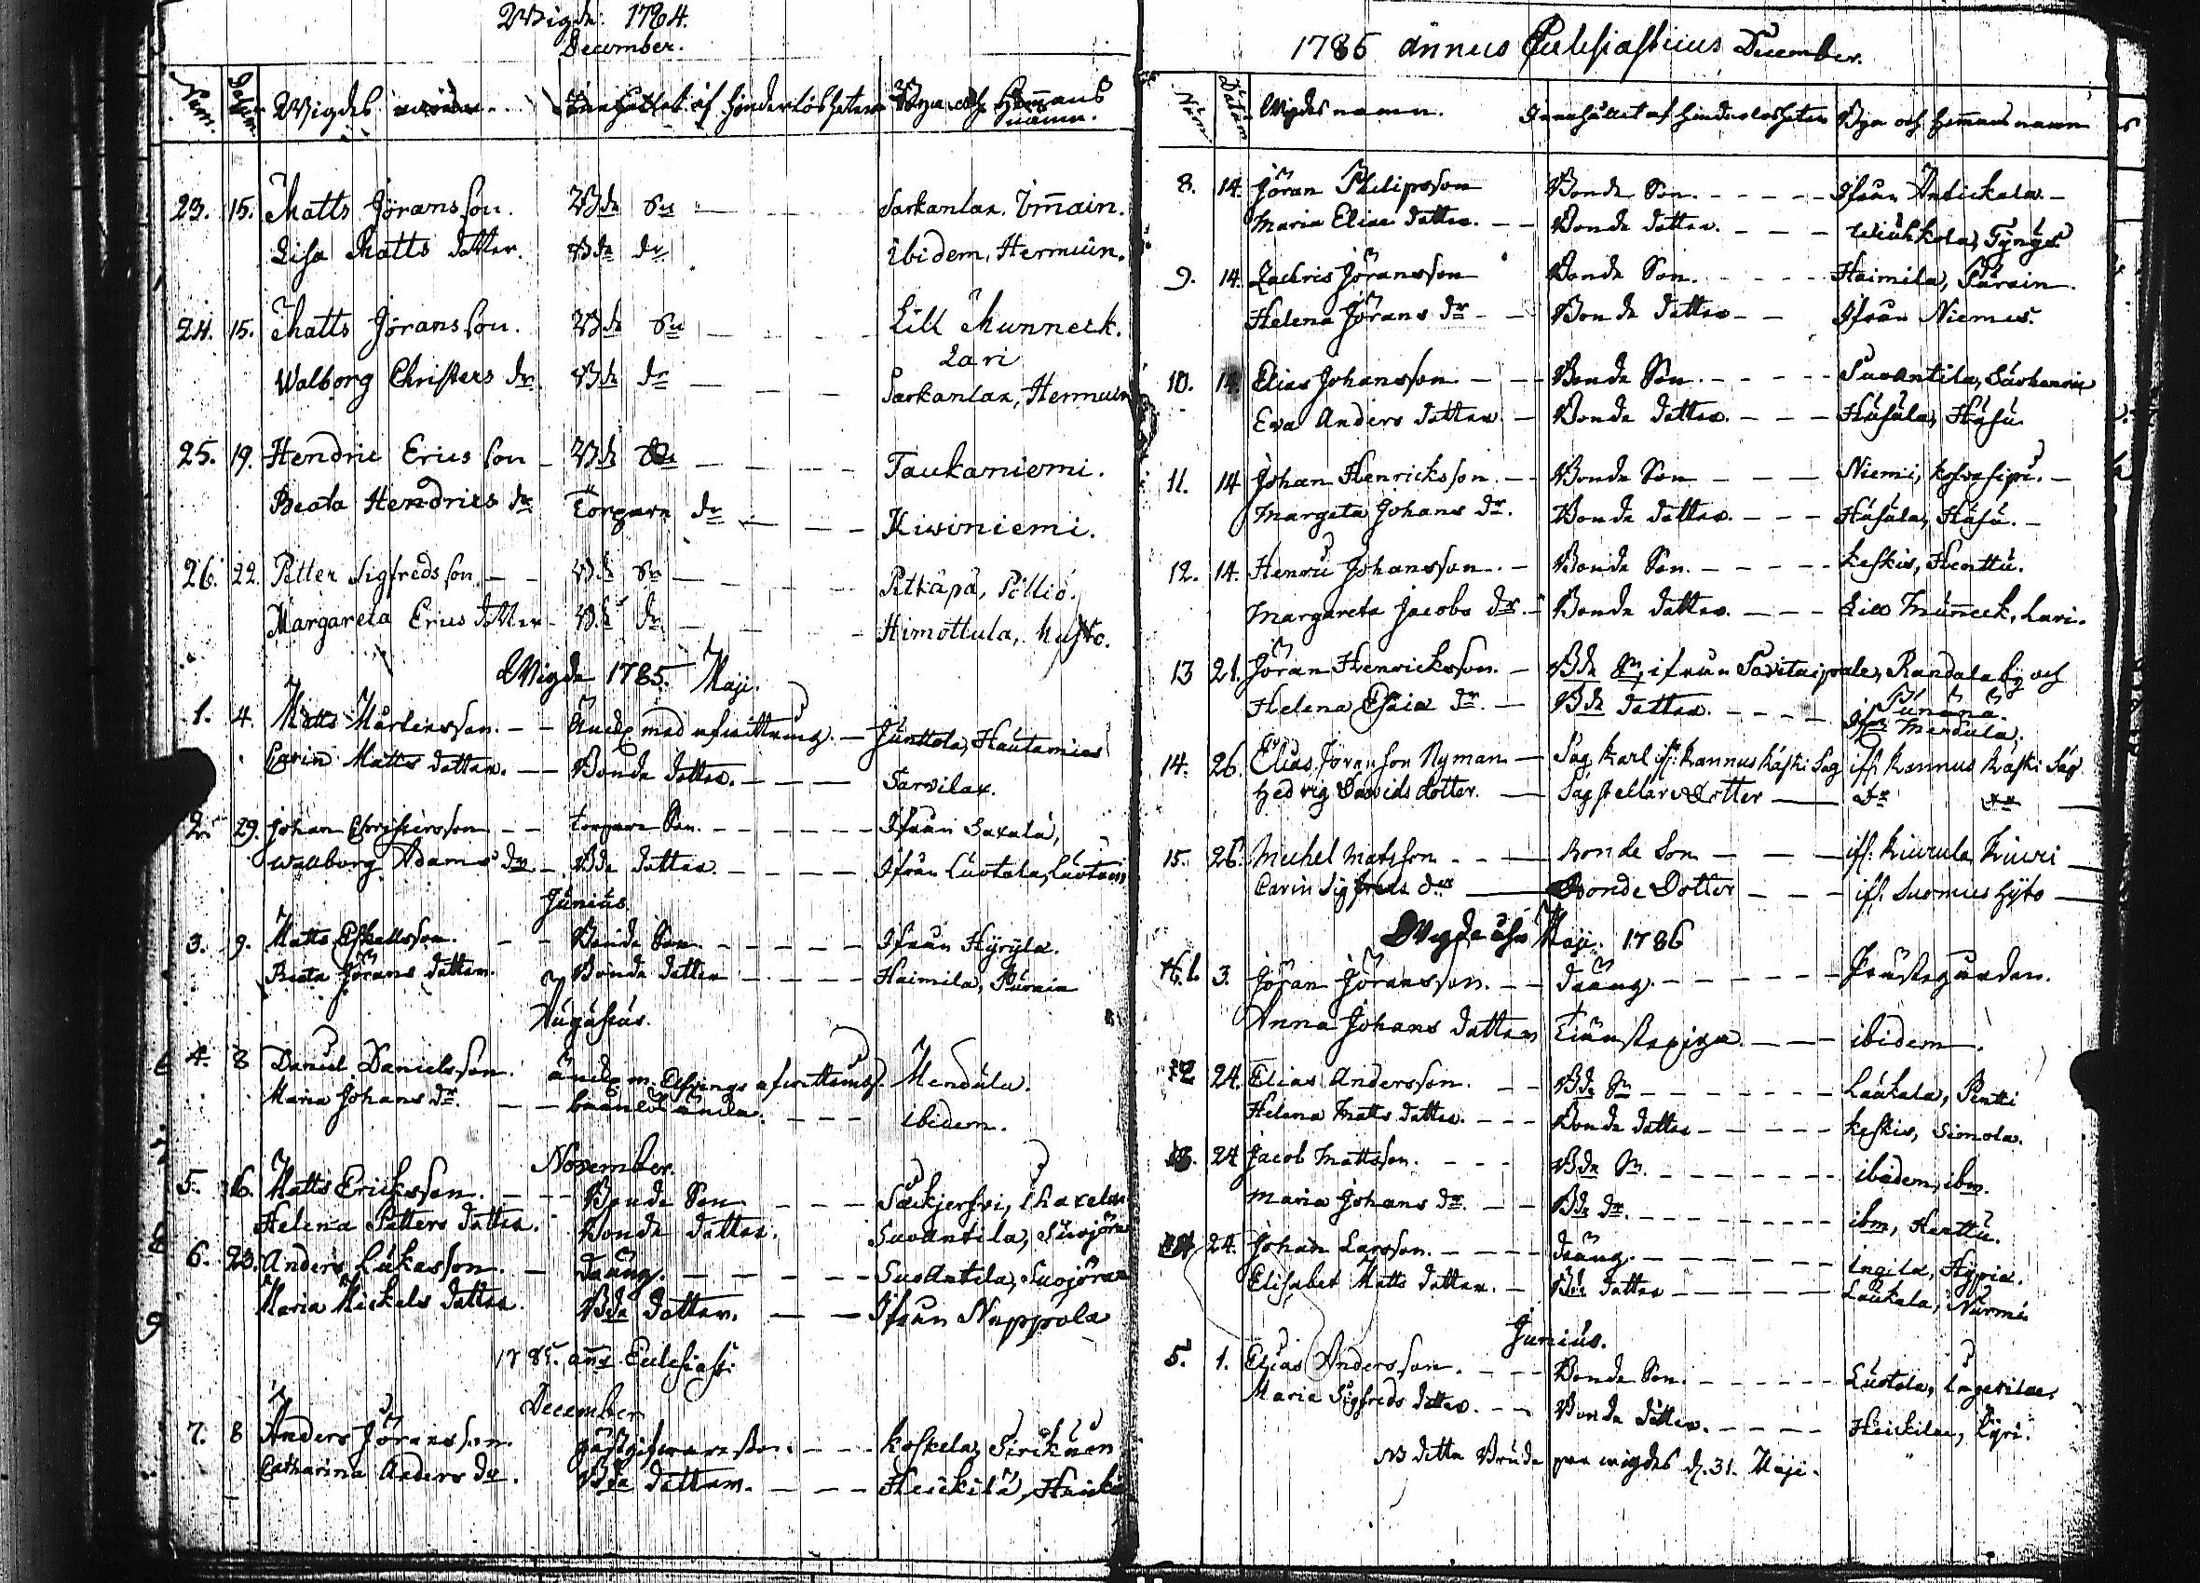 Wigde: 1784.
December.
Num. Datum. Wigdes Innehållet af hinderlösheten Byn och Hemmans namn.
23. 15. Matts Jöransson. Bde Sn Sarkanlax. Immain.
Lisa Matts dotter. Bde dr ibidem, Hermuin.
24. 15. Matts Jöransson. Bde Sn Lill Munneck. Lari
Walborg Christers dr. Bde dr Sarkanlax, Hermuin
25. 19. Hendric Ericsson Bde Taukaniemi.
Beata Hendrics dr Torpare dr Kiwiniemi.
26. 22. Petter Sigfredsson. Bde Sn Pitkäpä, Pölliö.
Margareta Erics dotter Bde dr Himottula, Musto.
Wigde 1785. Maji.
1. 4. Matts Mårtensson. Änckl. med afwittring. Junttola, Hautamies
Carin Matts dotter. Bonde dotter. Sarvilax.
2. 29. Johan Christersson Torpare Son. Ifrån Saxala,
Wallborg Adams dr Bde dotter. Ifrån Luotola, Luotoin
Junius.
3. 9. Matts Eskellsson. Bonde Son. Ifrån Hyrylä.
Beata Jörans dotter. Bonde dotter Haimila, Pärnin
Augustus.
4. 8 Daniel Danielsson. änckl. m. afwittring. Mendula.
Maria Johans dr. ibidem.
November.
5. 6. Matts Ericksson. Bonde Son Säckjerfwi,
Helena Petters dotter. Bonde dotter. Suvantila, Suojöra
6. 23. Anders Lukasson. dräng. Suvantila, Suojöran
Maria Mickels dotter. Bde dotter. Ifrån Nuppola
1785. ann Eclesiast:
December
7. 8 Anders Jöransson. gästgifware son. Koskela, Sirikuen
Catharina Anders dr. Bde dotter. Heickilä,
1785 annus Eclesiasticus December.
Num Datum Wigdes namn. Innehållet af hinderlösheten Byn och Hemmans namn
8. 14. Jöran Philipsson Bonde Son. Ifrån Antickala.
Maria Elias dotter. Bonde dotter. Wiuhkola, Tynys
9. 14. Zachris Jöransson Bonde Son. Haimila, Pärnin.
Helena Jörans dr Bonde dotter Ifrån Niemis.
10. 14. Elias Johansson. Bonde Son. Suvantila,
Eva Anders dotter. Bonde dotter. Häsälä, Häsü.
11. 14 Johan Henricksson. Bonde Son Niemi,
Margeta Johans dr. Bonde dotter. Häsälä, Häsü.
12. 14. Henric Johansson. Bonde Son. Keskis, Henttu.
Margareta Jacobs dr. Bonde dotter. Lill Munneck, Lari.
13 21. Jöran Henricksson. Bde Sn, ifrån Savitaipale, Randala by och
Punana.
Helena Esaia dr. Bde dotter. Ifrn Mendula.
14. 26. Elias Jöransson Nyman Såg karl ifr: Kannus Käski Såg ifr. Kannus Käski Såg
Hedvig Davids dotter. Sågställare dotter dr dr
15. 26. Michel Matsson Bonde Son ifr: Kiurula Kiuri
Carin Sigfreds dr Bonde Dotter ifr. Suomies Hyto
Wigde uti Maji. 1786
1. 3. Jöran Jöransson. dräng. Prästegården.
Anna Johans dotter Tiänstepiga ibidem.
2 24. Elias Andersson. Bde Sn Laukala, Pentti
Helena Matts dotter. Bonde dotter Keskis, Simola.
3. 24 Jacob Mattsson. Bde Sn. ibidem, ibm.
Maria Johans dr. Bde dr. ibm, Henttu.
4 24. Johan Larsson. dräng. Ingila, Hypia.
Elisabet Matts dotter. Bde dotter Laukala, Nurmi.
Junius.
5. 1. Elias Andersson. Bonde Son. Luotola,
Maria Sigfreds dotter. Bonde dotter. Heickilae, Kyri.
NB detta Brude par wigdes d. 31. Maji.